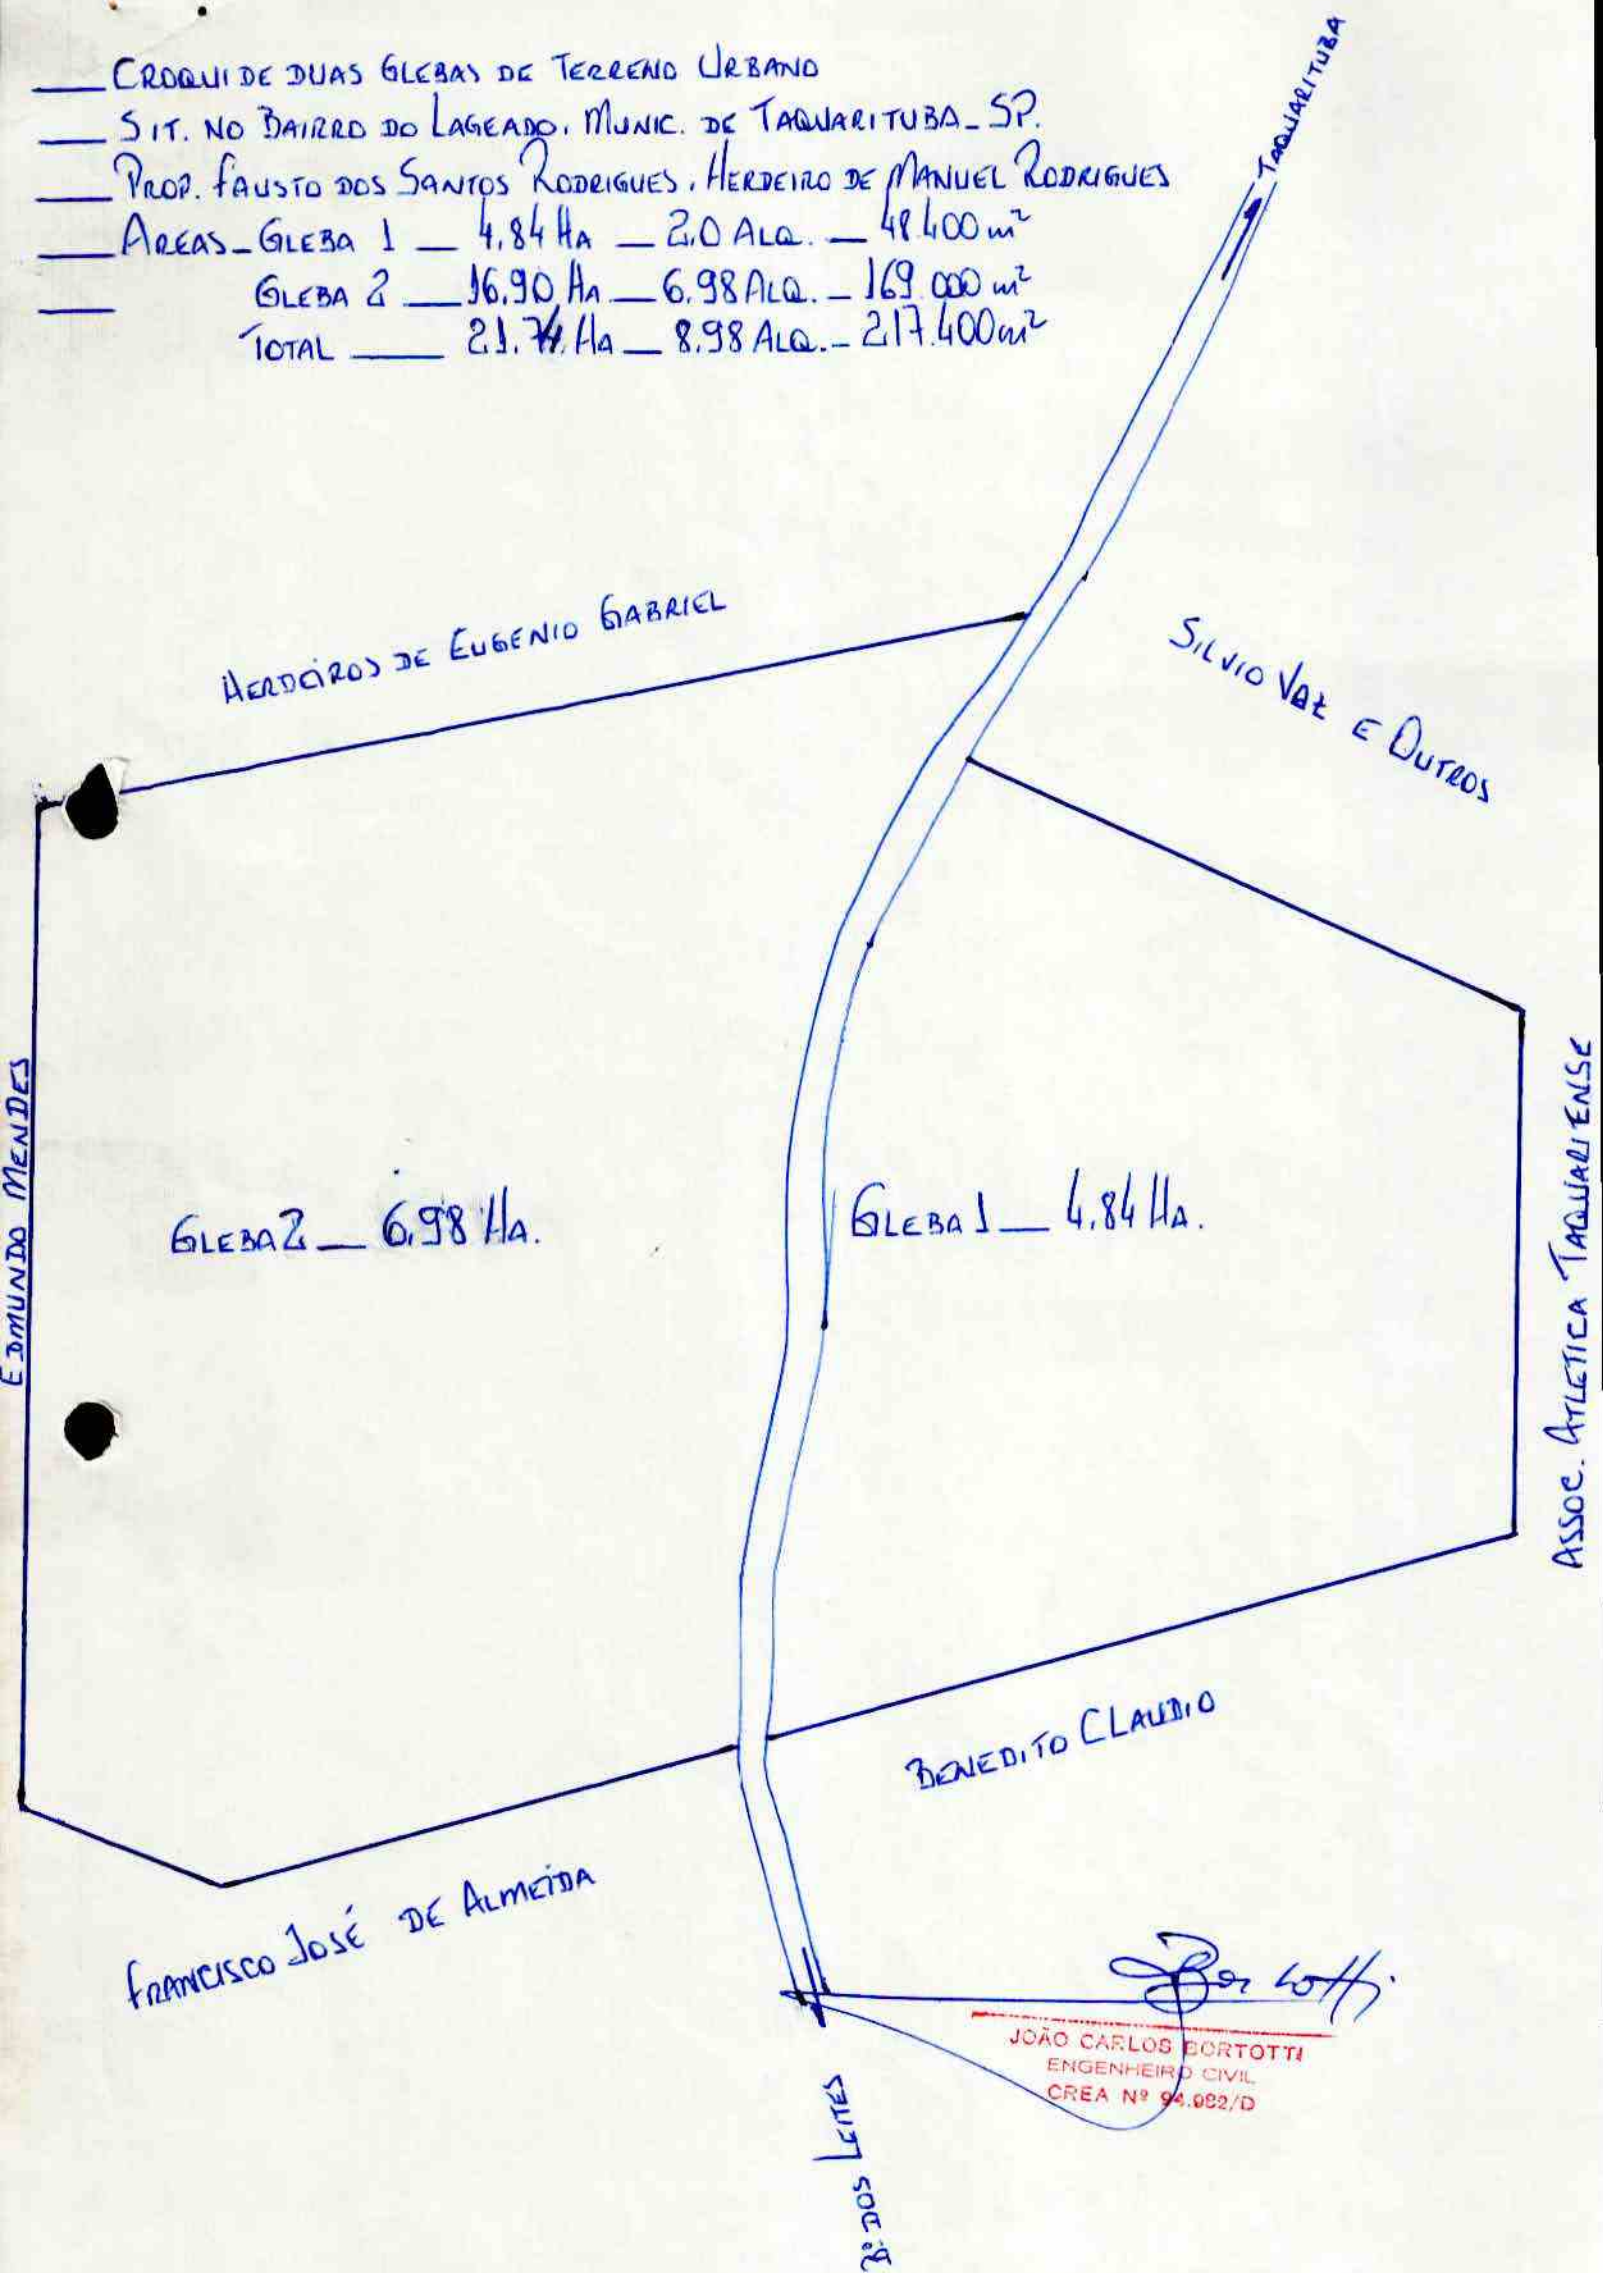 CROQUI DE DUAS GLEBAS DE TERRENO URBANO
SIT. NO BAIRRO DO LAGEADO. MUNIC. DE TAQUARITUBA - SP.
PROP. FAUSTO DOS SANTOS RODRIGUES. HERDEIRO DE MANUEL RODRIGUES
AREAS - GLEBA 1 — 4,84 HA — 2,0 ALQ. — 48.400 m²
GLEBA 2 — 16,90 HA — 6,98 ALQ. — 169.000 m²
TOTAL — 21,74 HA — 8,98 ALQ. — 217.400 m²
TAQUARITUBA
HERDEIROS DE EUGENIO GABRIEL
SILVIO VAZ E OUTROS
EDMUNDO MENDES
GLEBA 2 — 6,98 HA.
GLEBA 1 — 4,84 HA.
ASSOC. ATLETICA TAQUARIENSE
BENEDITO CLAUDIO
FRANCISCO JOSÉ DE ALMEIDA
Bortotti
JOÃO CARLOS BORTOTTI
ENGENHEIRO CIVIL
CREA Nº 94.982/D
Bº DOS LEITES